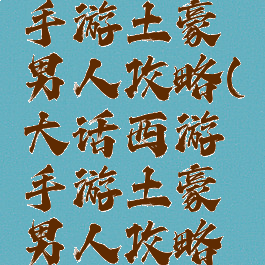 手游土豪
男人攻略(
大话西游
手游土豪
男人攻略